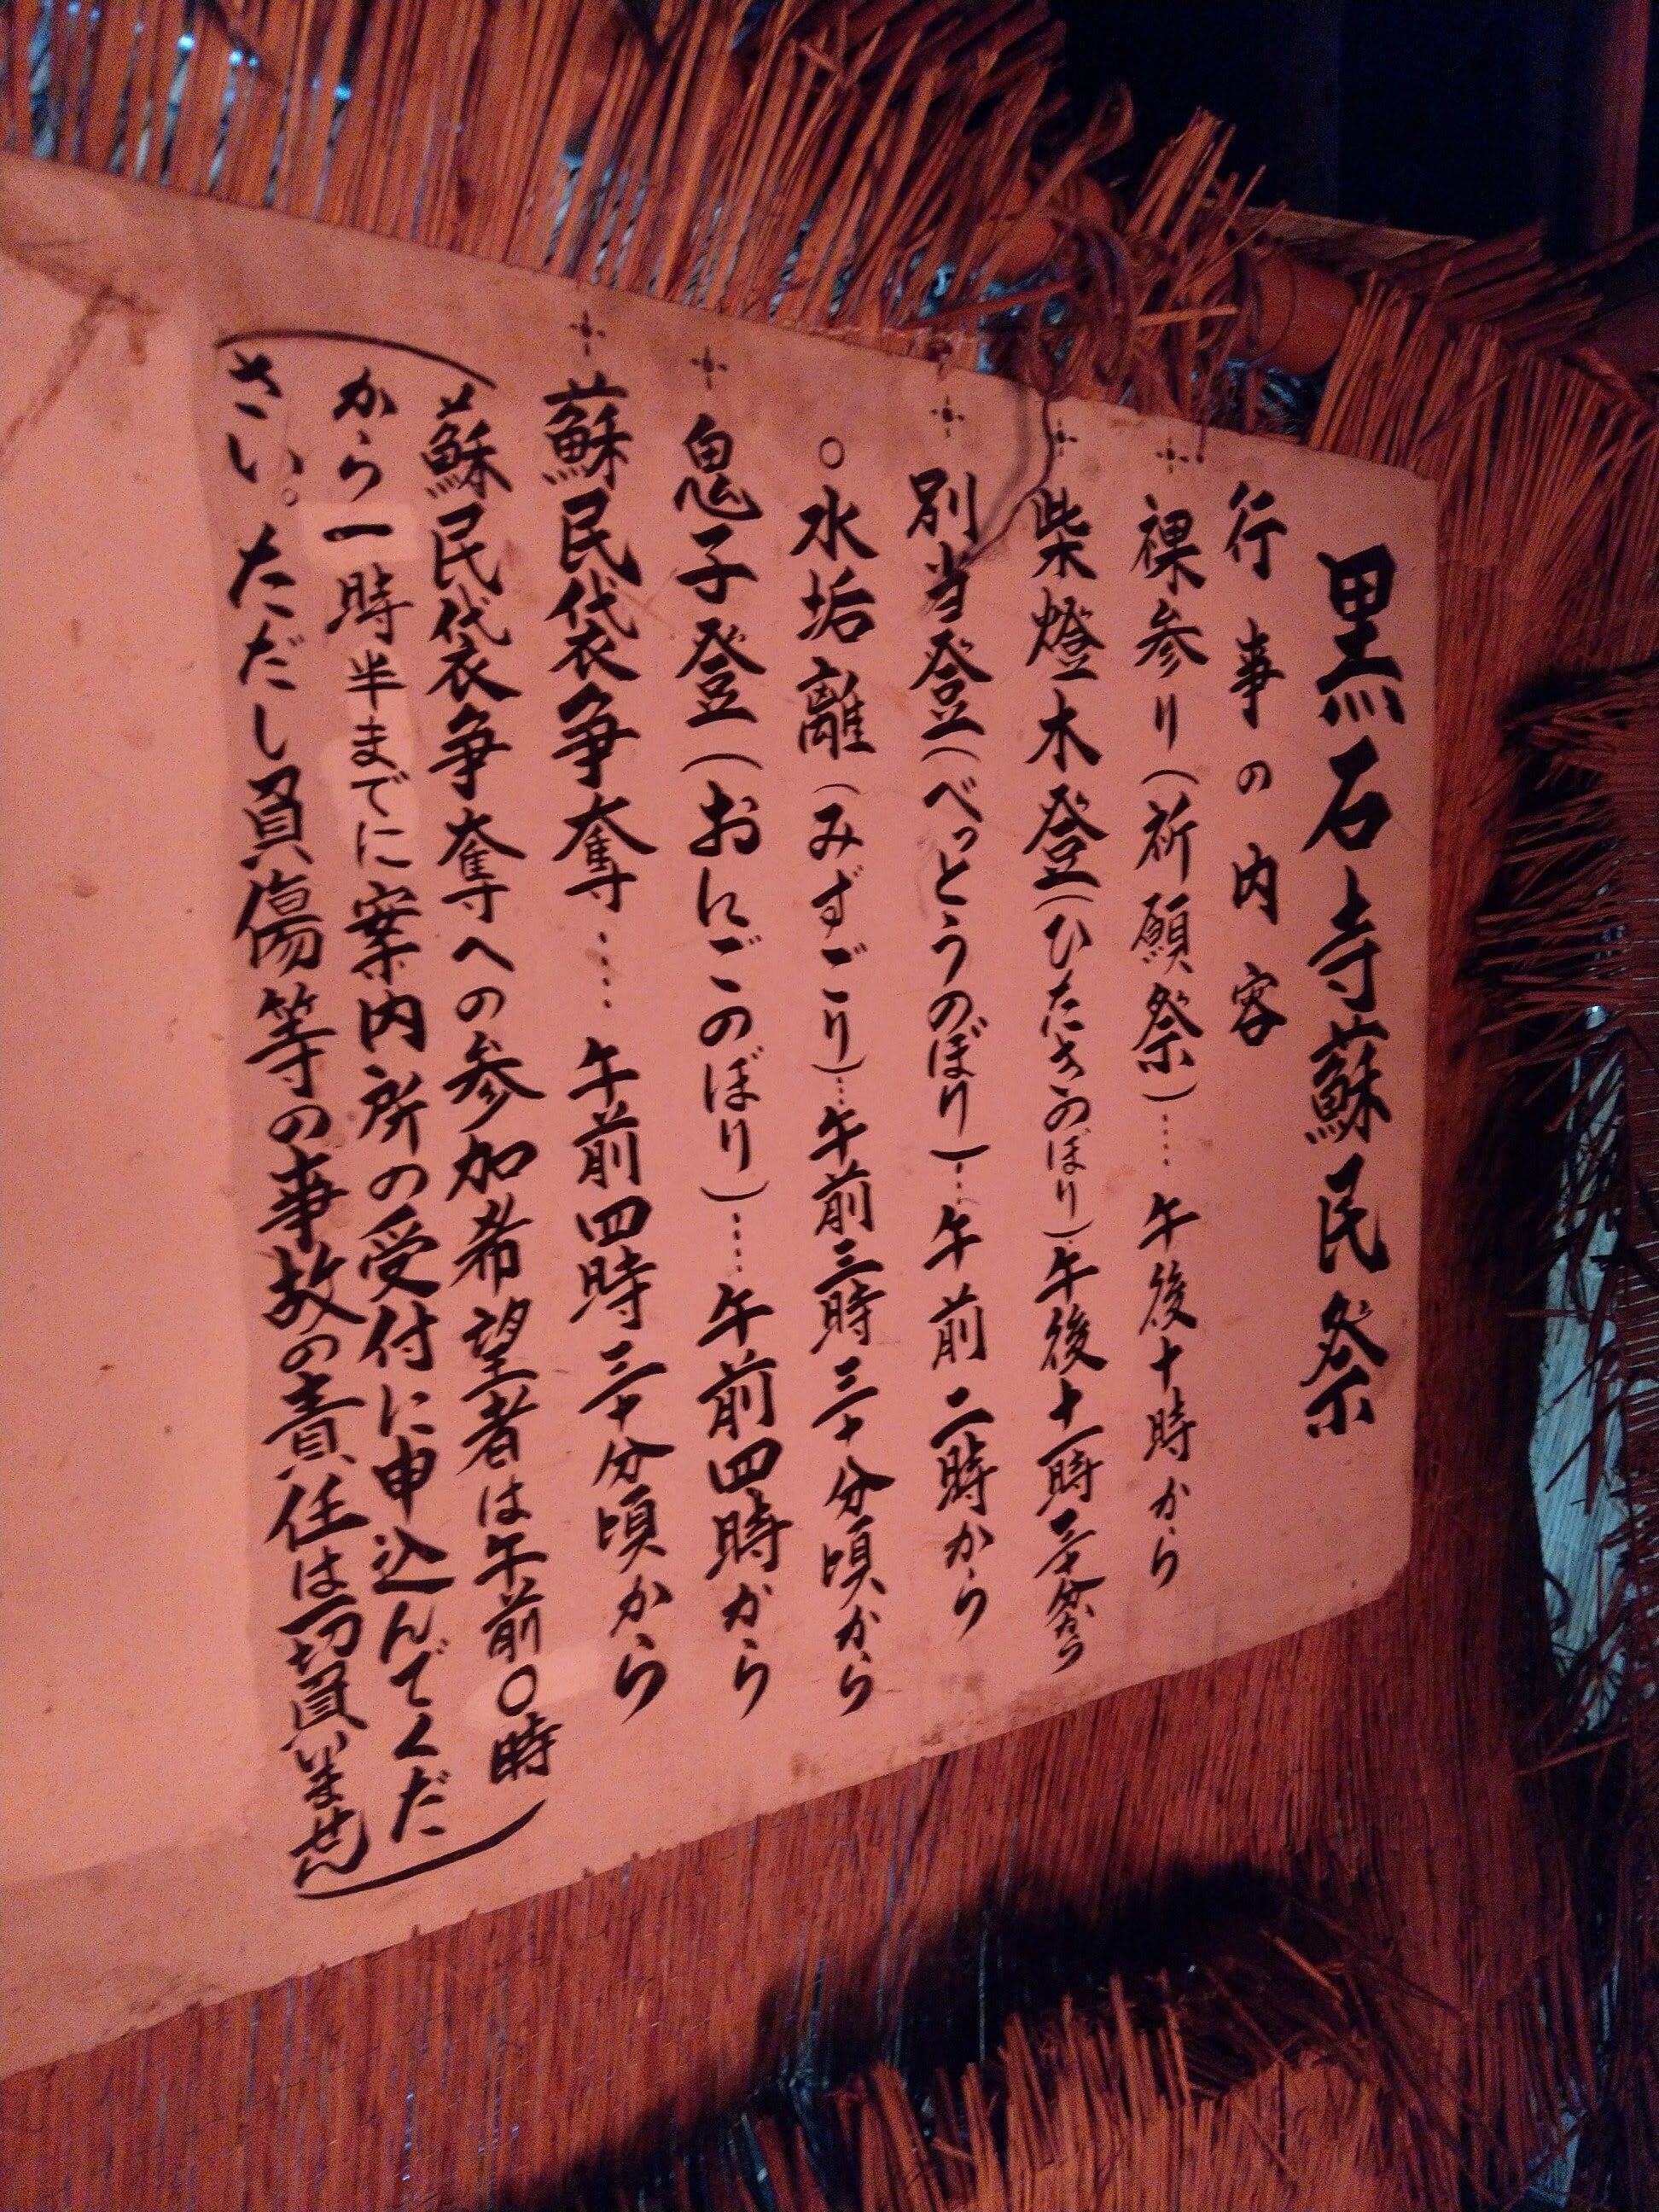 黒石寺蘇民祭
行事の内容
裸参り(祈願祭)……午後十時から
柴燈木登(ひたきのぼり)…午後十一時三十分から
別当登(べっとうのぼり)…午前二時から
○水垢離(みずごり)…午前三時三十分頃から
鬼子登(おにごのぼり)……午前四時から
蘇民袋争奪……午前四時三十分頃から
(蘇民袋争奪への参加希望者は午前〇時
から一時半までに案内所の受付に申込んでくだ
さい。ただし負傷等の事故の責任は一切負いません)